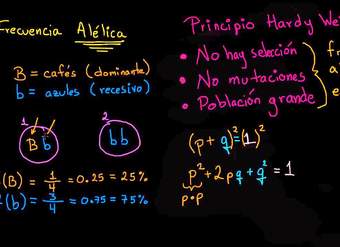 Frecuencia Alélica
B = cafés (dominante)
b = azules (recesivo)
1 2
B b bb
(B) = 1/4 = 0.25 = 25%
(b) = 3/4 = 0.75 = 75%
Principio Hardy
• No hay selección
• No mutaciones
• Población grande
(p + q)² = (1)²
p² + 2pq + q² = 1
p • p